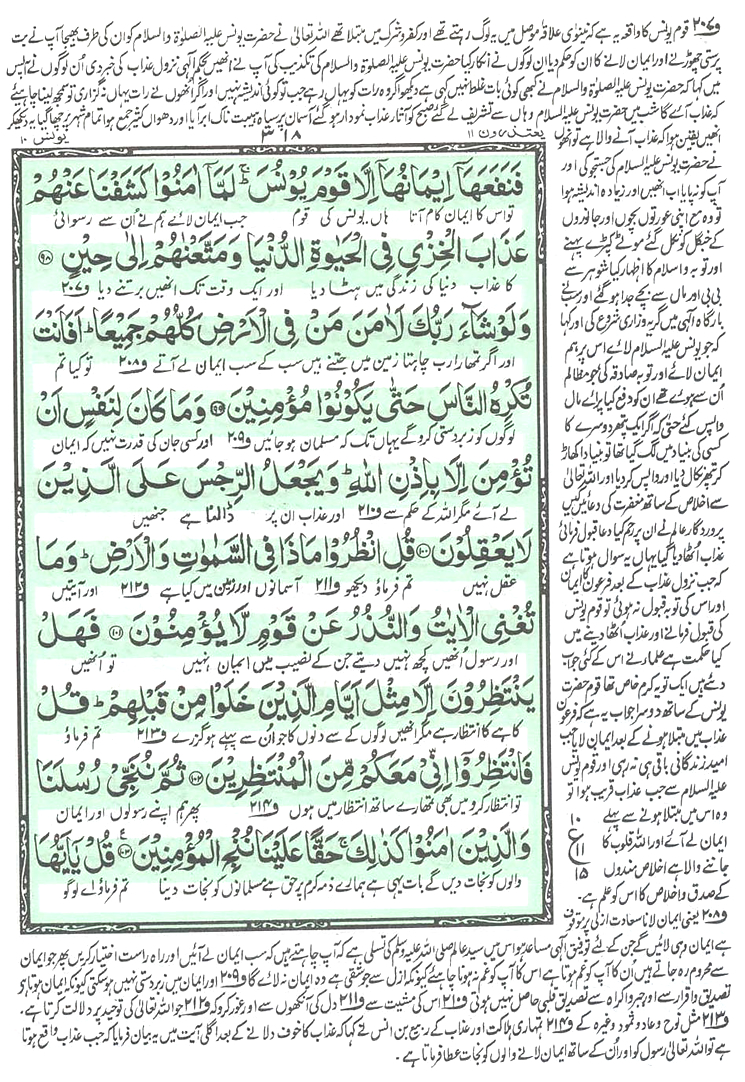 ف۲۰۷ قوم یونس کا واقعہ یہ ہے کہ نینوی علاقہ موصل میں یہ لوگ رہتے تھے اور کفر و شرک میں مبتلا تھے اللہ تعالیٰ نے حضرت یونس علیہ الصلوٰۃ والسلام کو ان کی طرف بھیجا آپ نے بت
پرستی چھوڑنے اور ایمان لانے کا ان کو حکم دیا ان لوگوں نے انکار کیا حضرت یونس علیہ الصلوٰۃ والسلام کی تکذیب کی آپ نے انھیں بحکم الٰہی نزول عذاب کی خبر دی ان لوگوں نے آپس
میں کہا کہ حضرت یونس علیہ الصلوٰۃ والسلام نے کبھی کوئی بات غلط نہیں کہی ہے دیکھو اگر وہ رات کو یہاں رہے جب تو کوئی اندیشہ نہیں اور اگر انھوں نے رات یہاں نہ گزاری تو سمجھ لینا چاہیئے
کہ عذاب آئے گا شب میں حضرت یونس علیہ السلام وہاں سے تشریف لے گئے صبح کو آثار عذاب نمودار ہو گئے آسمان پر سیاہ ہیبت ناک ابر آیا اور دھواں کثیر جمع ہوا تمام شہر پر چھا گیا یہ دیکھ کر
یعتذرون ۱۱
۳۱۸
یونس ۱۰
انھیں یقین ہوا کہ عذاب آنے والا ہے تو انھوں
نے حضرت یونس علیہ السلام کی جستجو کی اور
آپ کو نہ پایا اب انھیں اور زیادہ اندیشہ ہوا
تو وہ مع اپنی عورتوں بچوں اور جانوروں
کے جنگل کو نکل گئے موٹے کپڑے پہنے
اور توبہ و اسلام کا اظہار کیا شوہر سے
بی بی اور ماں سے بچے جدا ہو گئے اور سب نے
بارگاہ الٰہی میں گریہ و زاری شروع کی اور کہا
کہ جو یونس علیہ السلام لائے اس پر ہم
ایمان لائے اور توبہ صادقہ کی جو مظالم
ان سے ہوئے تھے ان کو دفع کیا پرائے مال
واپس کئے حتیٰ کہ اگر ایک پتھر دوسرے کا
کسی کی بنیاد میں لگ گیا تھا تو بنیاد اکھاڑ
کر پتھر نکال دیا اور واپس کر دیا اور اللہ تعالیٰ
سے اخلاص کے ساتھ مغفرت کی دعائیں کیں
پروردگار عالم نے ان پر رحم کیا دعا قبول فرمائی
عذاب اٹھا دیا گیا یہاں یہ سوال ہوتا ہے
کہ جب نزول عذاب کے بعد فرعون کا ایمان
اور اس کی توبہ قبول نہ ہوئی تو قوم یونس
کی قبول فرمانے اور عذاب اٹھا دینے میں
کیا حکمت ہے علماء نے اس کے کئی جواب
دئے ہیں ایک تو یہ کرم خاص تھا قوم حضرت
یونس کے ساتھ دوسرا جواب یہ ہے کہ فرعون
عذاب میں مبتلا ہونے کے بعد ایمان لایا جب
امید زندگانی باقی ہی نہ رہی اور قوم یونس
علیہ السلام سے جب عذاب قریب ہوا تو
وہ اس میں مبتلا ہونے سے پہلے
ایمان لے آئے اور اللہ قلوب کا
جاننے والا ہے اخلاص مندوں
کے صدق و اخلاص کا اس کو علم ہے۔
ف۲۰۸ یعنی ایمان لانا سعادت ازلی پر موقوف
۱۰
ع
۱۱
۱۵
فَنَفَعَهَاۤ اِيْمَانُهَاۤ اِلَّا قَوْمَ يُوْنُسَ ؕ لَمَّاۤ اٰمَنُوْا كَشَفْنَا عَنْهُمْ
تو اس کا ایمان کام آتا ہاں یونس کی قوم جب ایمان لائے ہم نے ان سے رسوائی
عَذَابَ الْخِزْيِ فِي الْحَيٰوةِ الدُّنْيَا وَ مَتَّعْنٰهُمْ اِلٰى حِيْنٍ ﴿۹۸﴾
کا عذاب دنیا کی زندگی میں ہٹا دیا اور ایک وقت تک انھیں برتنے دیا ف۲۰۷
وَ لَوْ شَآءَ رَبُّكَ لَاٰمَنَ مَنْ فِي الْاَرْضِ كُلُّهُمْ جَمِيْعًا ؕ اَفَاَنْتَ
اور اگر تمھارا رب چاہتا زمین میں جتنے ہیں سب کے سب ایمان لے آتے ف۲۰۸ تو کیا تم
تُكْرِهُ النَّاسَ حَتّٰى يَكُوْنُوْا مُؤْمِنِيْنَ ﴿۹۹﴾ وَ مَا كَانَ لِنَفْسٍ اَنْ
لوگوں کو زبردستی کرو گے یہاں تک کہ مسلمان ہو جائیں ف۲۰۹ اور کسی جان کی قدرت نہیں کہ ایمان
تُؤْمِنَ اِلَّا بِاِذْنِ اللّٰهِ ؕ وَ يَجْعَلُ الرِّجْسَ عَلَى الَّذِيْنَ
لے آئے مگر اللہ کے حکم سے ف۲۱۰ اور عذاب ان پر ڈالتا ہے جنھیں
لَا يَعْقِلُوْنَ ﴿۱۰۰﴾ قُلِ انْظُرُوْا مَا ذَا فِي السَّمٰوٰتِ وَ الْاَرْضِ ؕ وَ مَا
عقل نہیں تم فرماؤ دیکھو ف۲۱۱ آسمانوں اور زمین میں کیا ہے ف۲۱۲ اور آیتیں
تُغْنِي الْاٰيٰتُ وَ النُّذُرُ عَنْ قَوْمٍ لَّا يُؤْمِنُوْنَ ﴿۱۰۱﴾ فَهَلْ
اور رسول انھیں کچھ نہیں دیتے جن کے نصیب میں ایمان نہیں تو انھیں
يَنْتَظِرُوْنَ اِلَّا مِثْلَ اَيَّامِ الَّذِيْنَ خَلَوْا مِنْ قَبْلِهِمْ ؕ قُلْ
کاہے کا انتظار ہے مگر انھیں لوگوں کے سے دنوں کا جو ان سے پہلے ہو گزرے ف۲۱۳ تم فرماؤ
فَانْتَظِرُوْۤا اِنِّيْ مَعَكُمْ مِّنَ الْمُنْتَظِرِيْنَ ﴿۱۰۲﴾ ثُمَّ نُنَجِّيْ رُسُلَنَا
تو انتظار کرو میں بھی تمھارے ساتھ انتظار میں ہوں ف۲۱۴ پھر ہم اپنے رسولوں اور ایمان
وَ الَّذِيْنَ اٰمَنُوْا كَذٰلِكَ ۚ حَقًّا عَلَيْنَا نُنْجِ الْمُؤْمِنِيْنَ ﴿۱۰۳﴾ قُلْ يٰۤاَيُّهَا
والوں کو نجات دیں گے بات یہی ہے ہمارے ذمہ کرم پر حق ہے مسلمانوں کو نجات دینا تم فرماؤ اے لوگو
ہے ایمان وہی لائیں گے جن کے لئے توفیق الٰہی مساعد ہو اس میں سید عالم صلی اللہ علیہ وسلم کی تسلی ہے کہ آپ چاہتے ہیں کہ سب ایمان لے آئیں اور راہ راست اختیار کریں پھر جو ایمان
سے محروم رہ جاتے ہیں ان کا آپ کو غم ہوتا ہے اس کا آپ کو غم نہ ہونا چاہیئے کیونکہ ازل سے جو شقی ہے وہ ایمان نہ لائے گا ف۲۰۹ اور ایمان میں زبردستی نہیں ہو سکتی کیونکہ ایمان ہوتا ہے
تصدیق و اقرار سے اور جبر و اکراہ سے تصدیق قلبی حاصل نہیں ہوتی ف۲۱۰ اس کی مشیت سے ف۲۱۱ دل کی آنکھوں سے اور غور کرو کہ ف۲۱۲ جو اللہ تعالیٰ کی توحید پر دلالت کرتا ہے۔
ف۲۱۳ مثل نوح و عاد و ثمود وغیرہ کے ف۲۱۴ تمہاری ہلاکت اور عذاب کے ربیع بن انس نے کہا کہ عذاب کا خوف دلانے کے بعد اگلی آیت میں یہ بیان فرمایا کہ جب عذاب واقع ہوتا
ہے تو اللہ تعالیٰ رسول کو اور ان کے ساتھ ایمان لانے والوں کو نجات عطا فرماتا ہے۔